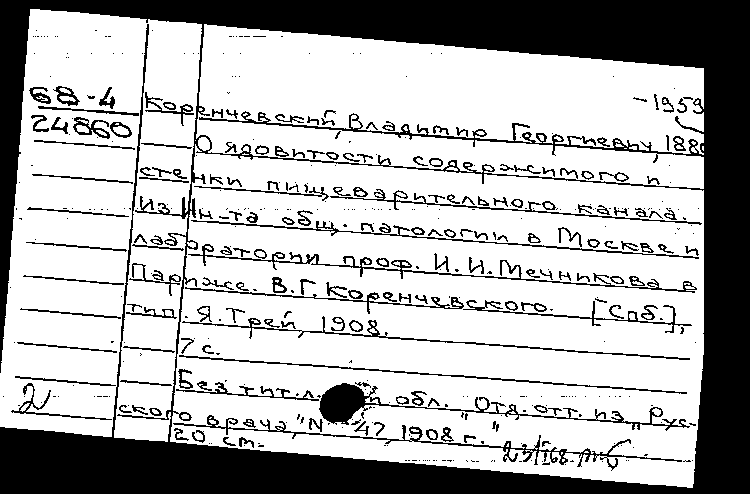 68-4
24860
-1959
Коренчевский, Владимир Георгиевич, 1880
О ядовитости содержимого и
стенки пищеварительного канала.
Из Ин-та общ. патологии в Москве и
лаборатории проф. И.И. Мечникова в
Париже. В.Г. Коренчевского. [Спб.],
тип. Я. Трей, 1908.
7 с.
Без тит. л. и обл. "Отд. отт. из "Рус-
ского врача," N 47, 1908 г."
20 см.
2